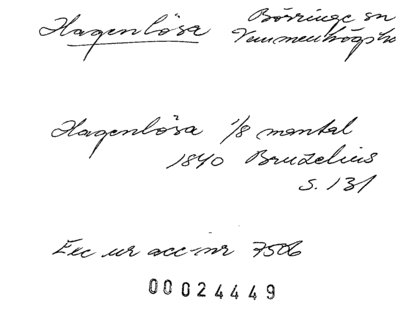 Hagenlösa Börringe sn
Vemmenhögs hd
Hagenlösa 1/8 mantal
1840 Bruzelius
s. 131
Exc ur acc-nr 7506
00024449